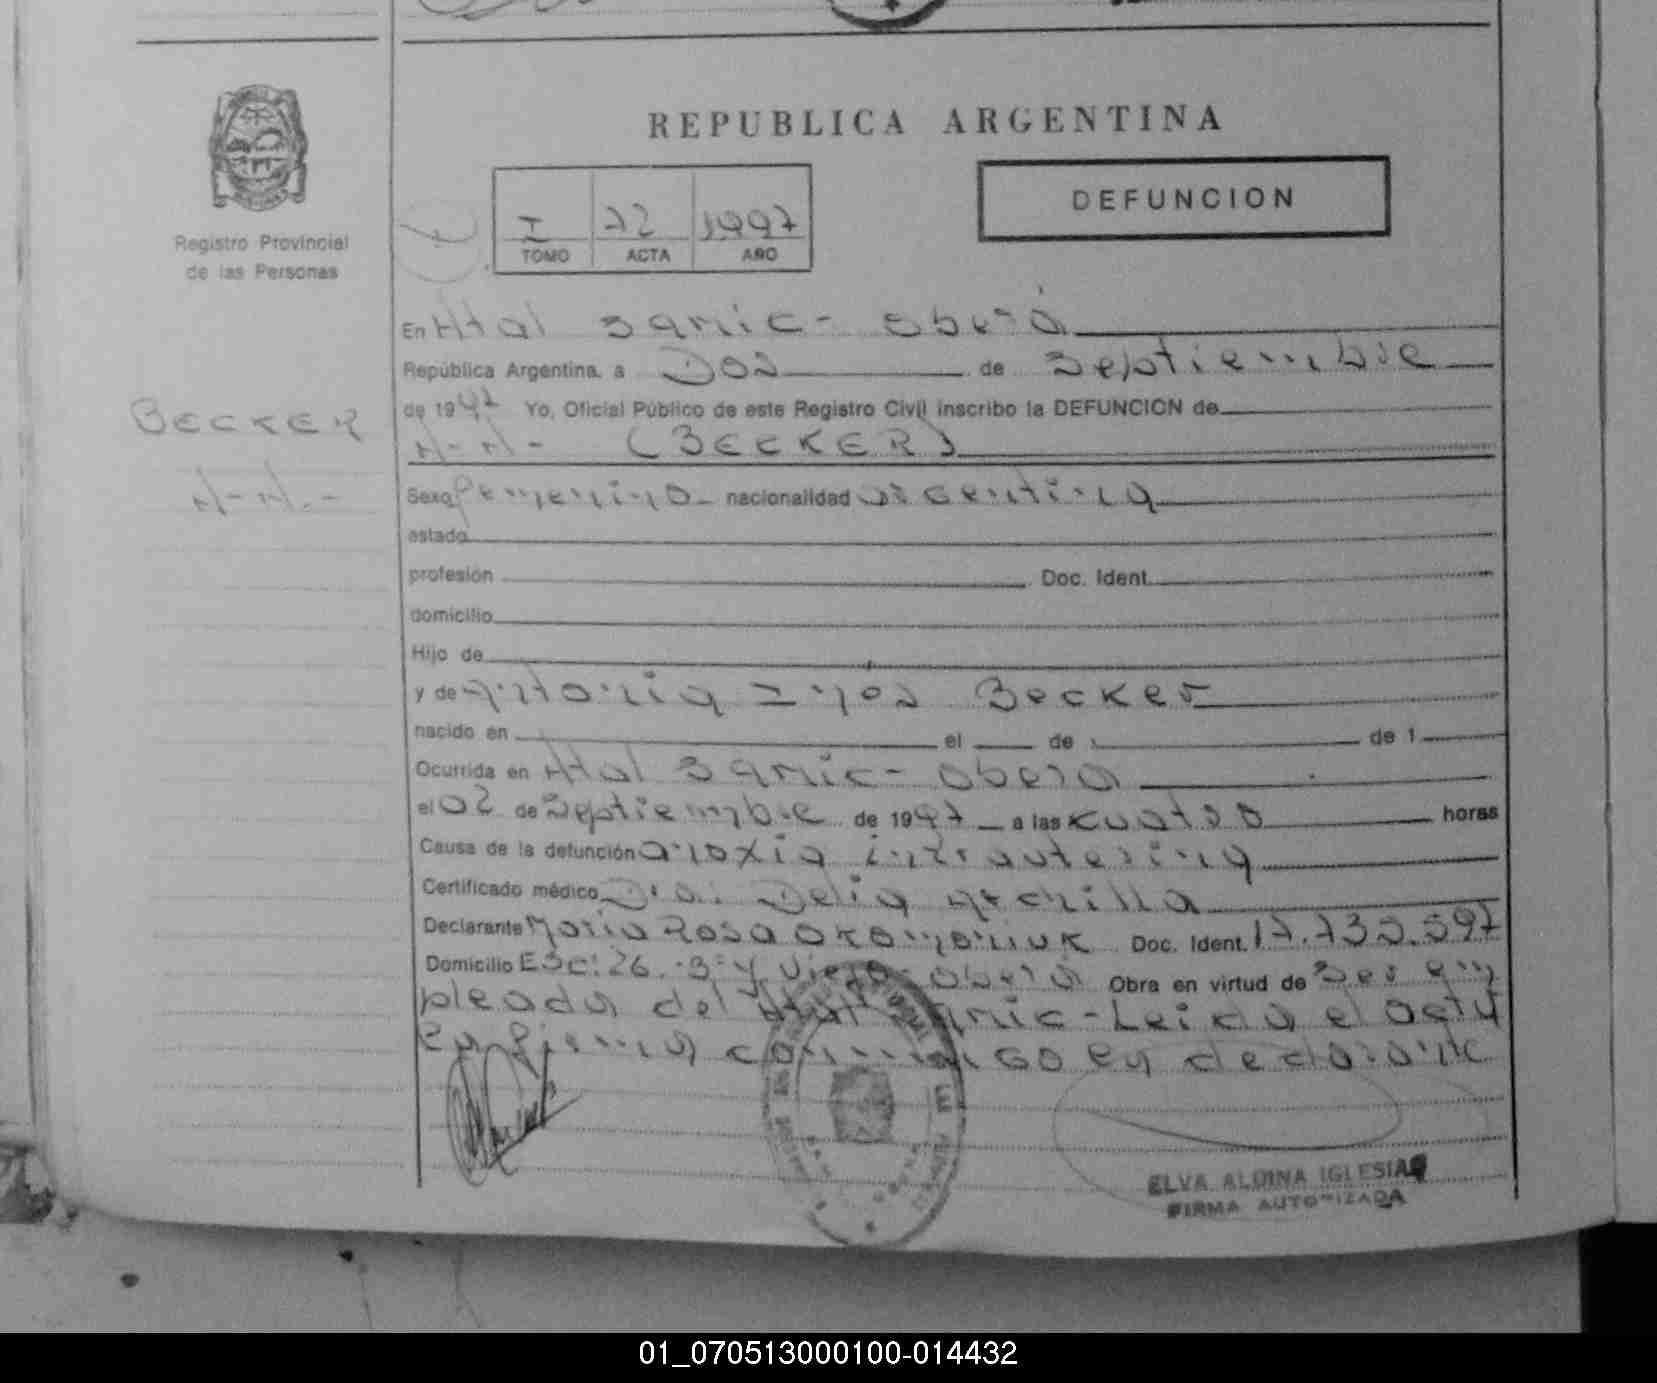 REPUBLICA ARGENTINA
DEFUNCION
I 72 1997
TOMO ACTA AÑO
Registro Provincial
de las Personas
En Htal Samic - Oberá
República Argentina, a Dos de Septiembre
de 1997 Yo, Oficial Público de este Registro Civil inscribo la DEFUNCION de
N-N- (BECKER)
BECKER
N-N.-
Sexo Femenino nacionalidad argentina
estado
profesión Doc. Ident.
domicilio
Hijo de
y de Antonia Inés Becker
nacido en el de de 1
Ocurrida en Htal Samic - Oberá
el 02 de Septiembre de 1997 a las cuatro horas
Causa de la defunción anoxia intrauterina
Certificado médico Dra. Delia Archilla
Declarante María Rosa Doc. Ident.
Domicilio Esc: 26. Oberá Obra en virtud de Ser em
pleada del Htal Samic - Leida el acta
la firma conmigo la declarante
ELVA ALDINA IGLESIAS
FIRMA AUTORIZADA
01_070513000100-014432